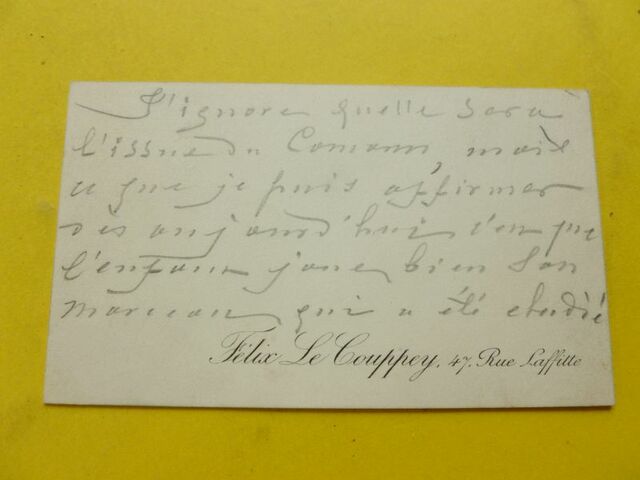 J'ignore quelle sera
l'issue du Concours, mais
ce que je puis affirmer
dès aujourd'hui c'est que
l'enfant joue bien son
morceau qui a été étudié
Félix Le Couppey, 47, Rue Laffitte